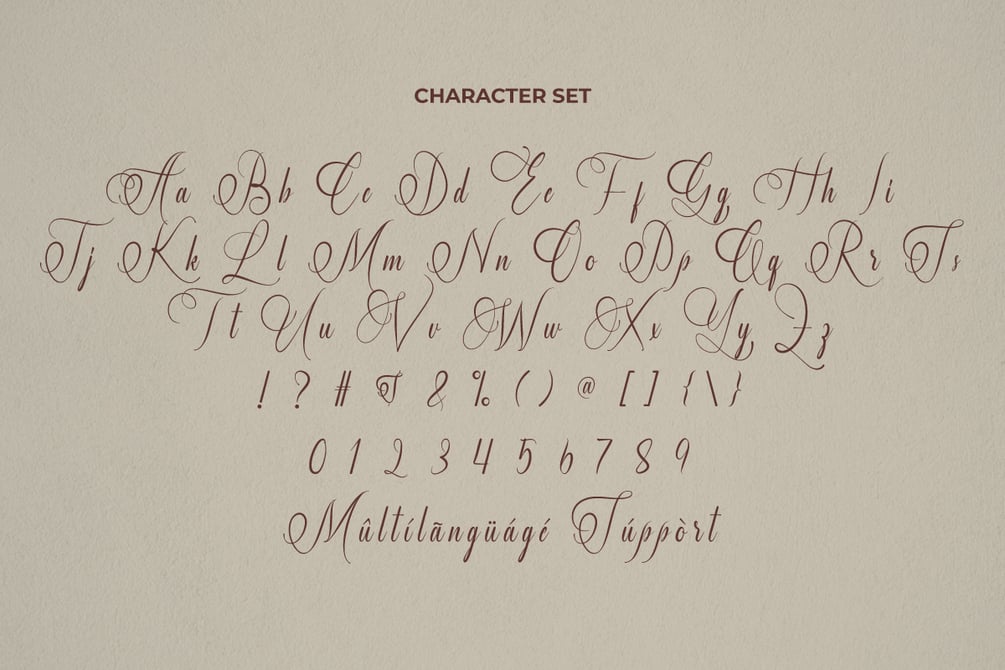 CHARACTER SET
Aa Bb Cc Dd Ee Ff Gg Hh Ii
Jj Kk Ll Mm Nn Oo Pp Qq Rr Ss
Tt Uu Vv Ww Xx Yy Zz
! ? # & % ( ) @ [ ] { \ }
0 1 2 3 4 5 6 7 8 9
Mûltílãngüágé Súppòrt